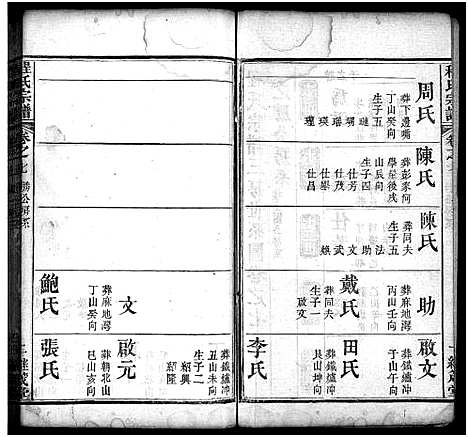 程氏宗譜
周氏
葬下邊嘴
丁山癸向
生子五
璉
瑤
琇
理
陳氏
葬彭家何
學屋後戌
山辰向
生子四
仕芳
仕茂
仕昌
陳氏
葬同夫
生子五
法
助
文
武
煥
助
葬麻地灣
丙山壬向
戴氏
葬同夫
生子一
啟文
啟文
葬鐵爐冲
子山午向
田氏
葬鐵爐冲
艮山坤向
李氏
程氏宗譜
卷之九
文
葬麻地灣
丁山癸向
鮑氏
葬鐵爐冲
丑山未向
生子二
紹興
紹隆
啟元
葬朝北山
巳山亥向
張氏